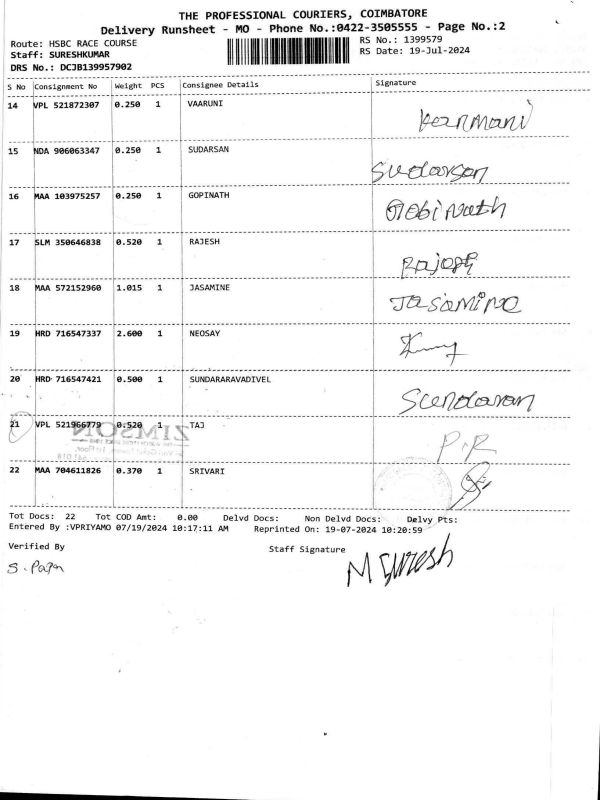 THE PROFESSIONAL COURIERS, COIMBATORE
Delivery Runsheet - MO - Phone No.:0422-3505555 - Page No.:2
Route: HSBC RACE COURSE
RS No.: 1399579
Staff: SURESHKUMAR
RS Date: 19-Jul-2024
DRS No.: DCJB139957902
S No Consignment No Weight PCS Consignee Details Signature
14 VPL 521872307 0.250 1 VAARUNI
15 NDA 906063347 0.250 1 SUDARSAN Sudarsan
16 MAA 103975257 0.250 1 GOPINATH Gobinath
17 SLM 350646838 0.520 1 RAJESH Rajesh
18 MAA 572152960 1.015 1 JASAMINE Jasamine
19 HRD 716547337 2.600 1 NEOSAY
20 HRD 716547421 0.500 1 SUNDARARAVADIVEL Sundaran
21 VPL 521966779 0.520 1 TAJ P.R
ZIMSON
22 MAA 704611826 0.370 1 SRIVARI
Tot Docs: 22 Tot COD Amt: 0.00 Delvd Docs: Non Delvd Docs: Delvy Pts:
Entered By :VPRIYAMO 07/19/2024 10:17:11 AM Reprinted On: 19-07-2024 10:20:59
Verified By
Staff Signature
M Suresh